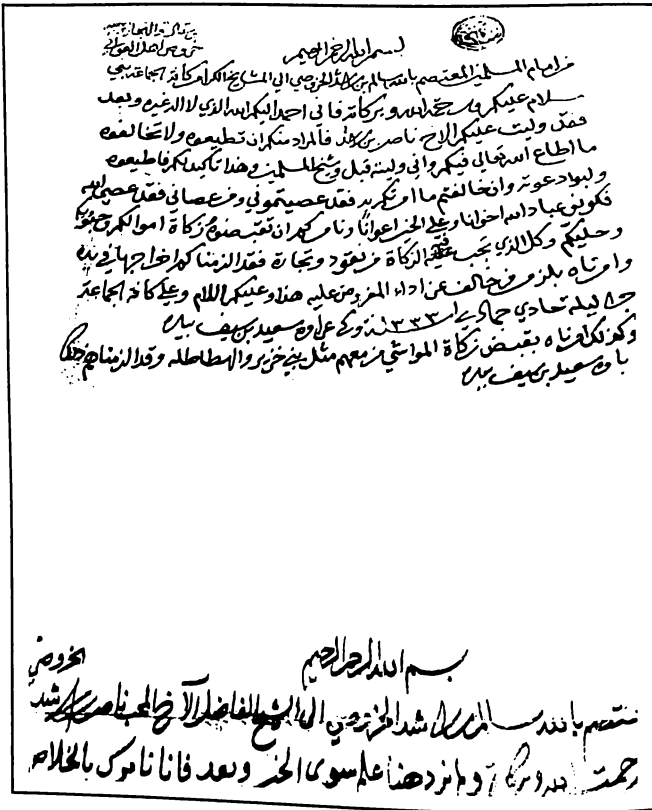 بسم الله الرحمن الرحيم
من امام المسلمين المعتصم بالله سالم بن راشد الخروصي الى المشايخ الكرام وكافة الجماعة بني
خروص اهل العوابي
سلام عليكم ورحمة الله وبركاته فاني احمد اليكم الله الذي لا اله غيره وبعد
فقد وليت عليكم الاخ ناصر بن راشد فالمراد منكم ان تطيعوه ولا تخالفوه
ما اطاع الله تعالى فيكم واني وليته قبل وشيخ المسلمين وهذا تأكيد لكم فاطيعوه
ولبوا دعوته وان خالفتم ما امرتكم به فقد عصيتموني ومن عصاني فقد عصى الله
فكونوا عباد الله اخوانا وعلى الخير اعوانا ونامركم ان تقبضوه زكاة اموالكم
وحليكم وكل الذي تجب فيه الزكاة من نقود وتجارة فقد الزمناكم اخراجها في يده
وامرناه يلزم من خالف عن اداء المفروض عليه هذا وعليكم السلام وعلى كافة الجماعة
ليلة حادي جمادى ١٣٣٣ سنة وكتبه عن امره سعيد بن سيف بيده
وكذلك امرناه بقبض زكاة المواشي من معهم مثل بني خزير والهطاطله وقد الزمناهم
بامره سعيد بن سيف بيده
بسم الله الرحمن الرحيم
المعتصم بالله سالم بن راشد الخروصي الى الشيخ الفاضل الاخ المحب ناصر بن راشد
الخروصي
رحمت الله وبركاته وما نزد هنا علم سوى الخير وبعد فانا نامرك بالخلاص